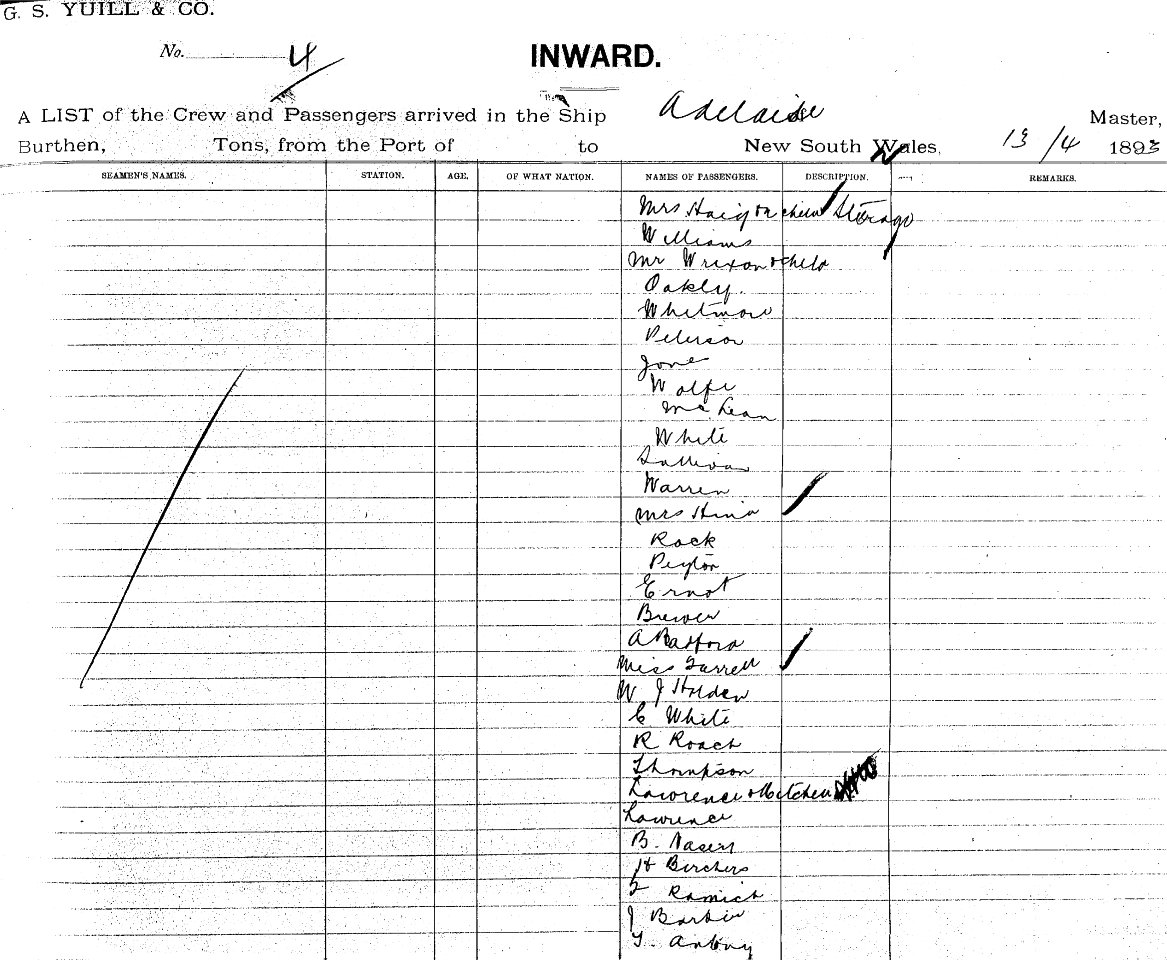 G. S. YUILL & CO.
No. 4
INWARD.
A LIST of the Crew and Passengers arrived in the Ship Adelaide Master,
Burthen, Tons, from the Port of to New South Wales, 13/4 1893
SEAMEN'S NAMES. STATION. AGE. OF WHAT NATION. NAMES OF PASSENGERS. DESCRIPTION. REMARKS.
Mrs Steerage
Williams
Mr Wrixon & child
Oakly.
Whitmore
Peterson
Jones
Wolfe
McLean
White
Sullivan
Warren
Mrs
Rock
Peyton
Ernst
Brewer
A Radford
Miss Farrell
W J Holden
C White
R Roach
Thompson
Lawrence & Mitchell
Lawrence
B.
H Borchers
F Ramich
J
T. Antony